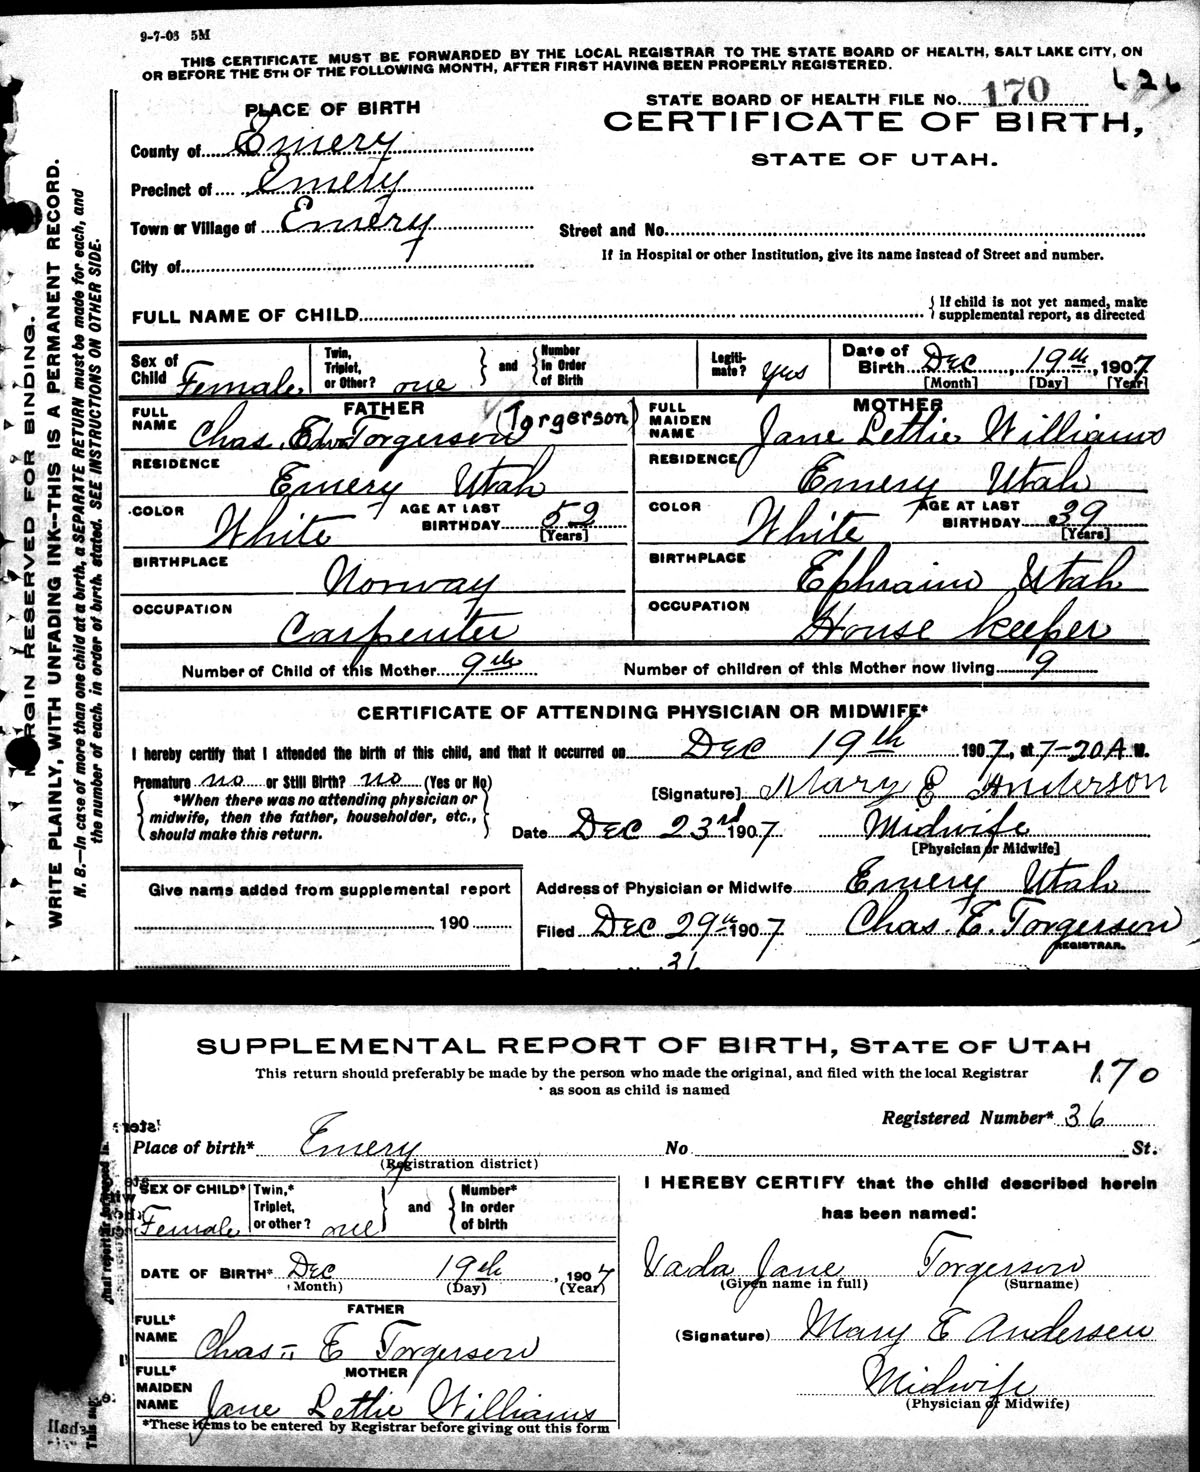 9-7-03 5M
THIS CERTIFICATE MUST BE FORWARDED BY THE LOCAL REGISTRAR TO THE STATE BOARD OF HEALTH, SALT LAKE CITY, ON
OR BEFORE THE 5TH OF THE FOLLOWING MONTH, AFTER FIRST HAVING BEEN PROPERLY REGISTERED.
626
PLACE OF BIRTH
County of Emery
Precinct of Emery
Town or Village of Emery
City of
STATE BOARD OF HEALTH FILE No. 170
CERTIFICATE OF BIRTH,
STATE OF UTAH.
Street and No.
If in Hospital or other Institution, give its name instead of Street and number.
FULL NAME OF CHILD
If child is not yet named, make
supplemental report, as directed
Sex of Child Female
Twin, Triplet, or Other? one
and
Number In Order of Birth
Legiti-mate? yes
Date of Birth Dec 19th, 1907
[Month] [Day] [Year]
FATHER
FULL NAME Chas. Edw Torgerson (Torgerson)
RESIDENCE Emery Utah
COLOR White
AGE AT LAST BIRTHDAY 52
[Years]
BIRTHPLACE Norway
OCCUPATION Carpenter
MOTHER
FULL MAIDEN NAME Jane Lettie Williams
RESIDENCE Emery Utah
COLOR White
AGE AT LAST BIRTHDAY 39
[Years]
BIRTHPLACE Ephraim Utah
OCCUPATION House keeper
Number of Child of this Mother 9th
Number of children of this Mother now living 9
CERTIFICATE OF ATTENDING PHYSICIAN OR MIDWIFE*
I hereby certify that I attended the birth of this child, and that it occurred on Dec 19th 1907, at 7-20 A. M.
Premature no or Still Birth? no (Yes or No)
*When there was no attending physician or
midwife, then the father, householder, etc.,
should make this return.
[Signature] Mary E Anderson
Date Dec 23rd 1907 Midwife
[Physician or Midwife]
Give name added from supplemental report
190
Address of Physician or Midwife Emery Utah
Filed Dec 29th 1907 Chas. E. Torgerson
REGISTRAR.
MARGIN RESERVED FOR BINDING.
WRITE PLAINLY, WITH UNFADING INK--THIS IS A PERMANENT RECORD.
N. B.--In case of more than one child at a birth, a SEPARATE RETURN must be made for each, and
the number of each, in order of birth, stated. SEE INSTRUCTIONS ON OTHER SIDE.
SUPPLEMENTAL REPORT OF BIRTH, STATE OF UTAH
This return should preferably be made by the person who made the original, and filed with the local Registrar
as soon as child is named
170
Registered Number* 36
Place of birth* Emery No St.
(Registration district)
SEX OF CHILD* Female
Twin,* Triplet, or other? one
and
Number* In order of birth
DATE OF BIRTH* Dec 19th, 1907
(Month) (Day) (Year)
FATHER
FULL* NAME Chas. E Torgerson
MOTHER
FULL* MAIDEN NAME Jane Lettie Williams
*These items to be entered by Registrar before giving out this form
I HEREBY CERTIFY that the child described herein
has been named:
Vada Jane Torgerson
(Given name in full) (Surname)
(Signature) Mary E Andersen
Midwife
(Physician or Midwife)